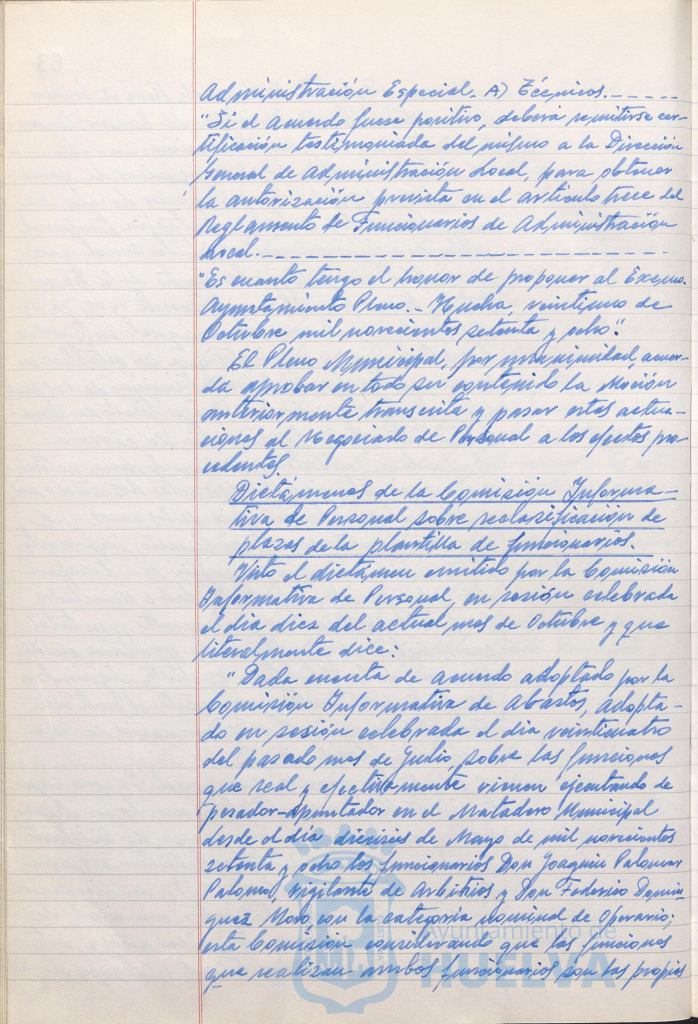 Administración Especial. A) Técnicos.-----
"Si el acuerdo fuese positivo, deberá remitirse cer-
tificación testimoniada del mismo a la Dirección
General de Administración Local, para obtener
la autorización prevista en el artículo trece del
Reglamento de Funcionarios de Administración
Local.-----
"Es cuanto tengo el honor de proponer al Excmo.
Ayuntamiento Pleno.- Huelva, veintiuno de
Octubre, mil novecientos setenta y ocho".
El Pleno Municipal, por unanimidad, acuer-
da aprobar en todo su contenido la Moción
anteriormente transcrita y pasar estas actua-
ciones al Negociado de Personal a los efectos pro-
cedentes.
Dictámenes de la Comisión Informa-
tiva de Personal sobre reclasificación de
plazas de la plantilla de funcionarios.
Visto el dictámen emitido por la Comisión
Informativa de Personal, en sesión celebrada
el día diez del actual mes de Octubre y que
literalmente dice:
"Dada cuenta de acuerdo adoptado por la
Comisión Informativa de Abastos, adopta-
do en sesión celebrada el día veinticuatro
del pasado mes de Julio, sobre las funciones
que real y efectivamente vienen ejecutando de
pesador-apuntador en el Matadero Municipal
desde el día dieciseis de Mayo de mil novecientos
setenta y ocho los funcionarios Don Joaquin Palomar
Palomo, Vigilante de Arbitrios y Don Federico Domin-
guez Moro, con la categoría nominal de Operario;
esta Comisión considerando que las funciones
que realizan ambos funcionarios son las propias
Ayuntamiento de
HUELVA